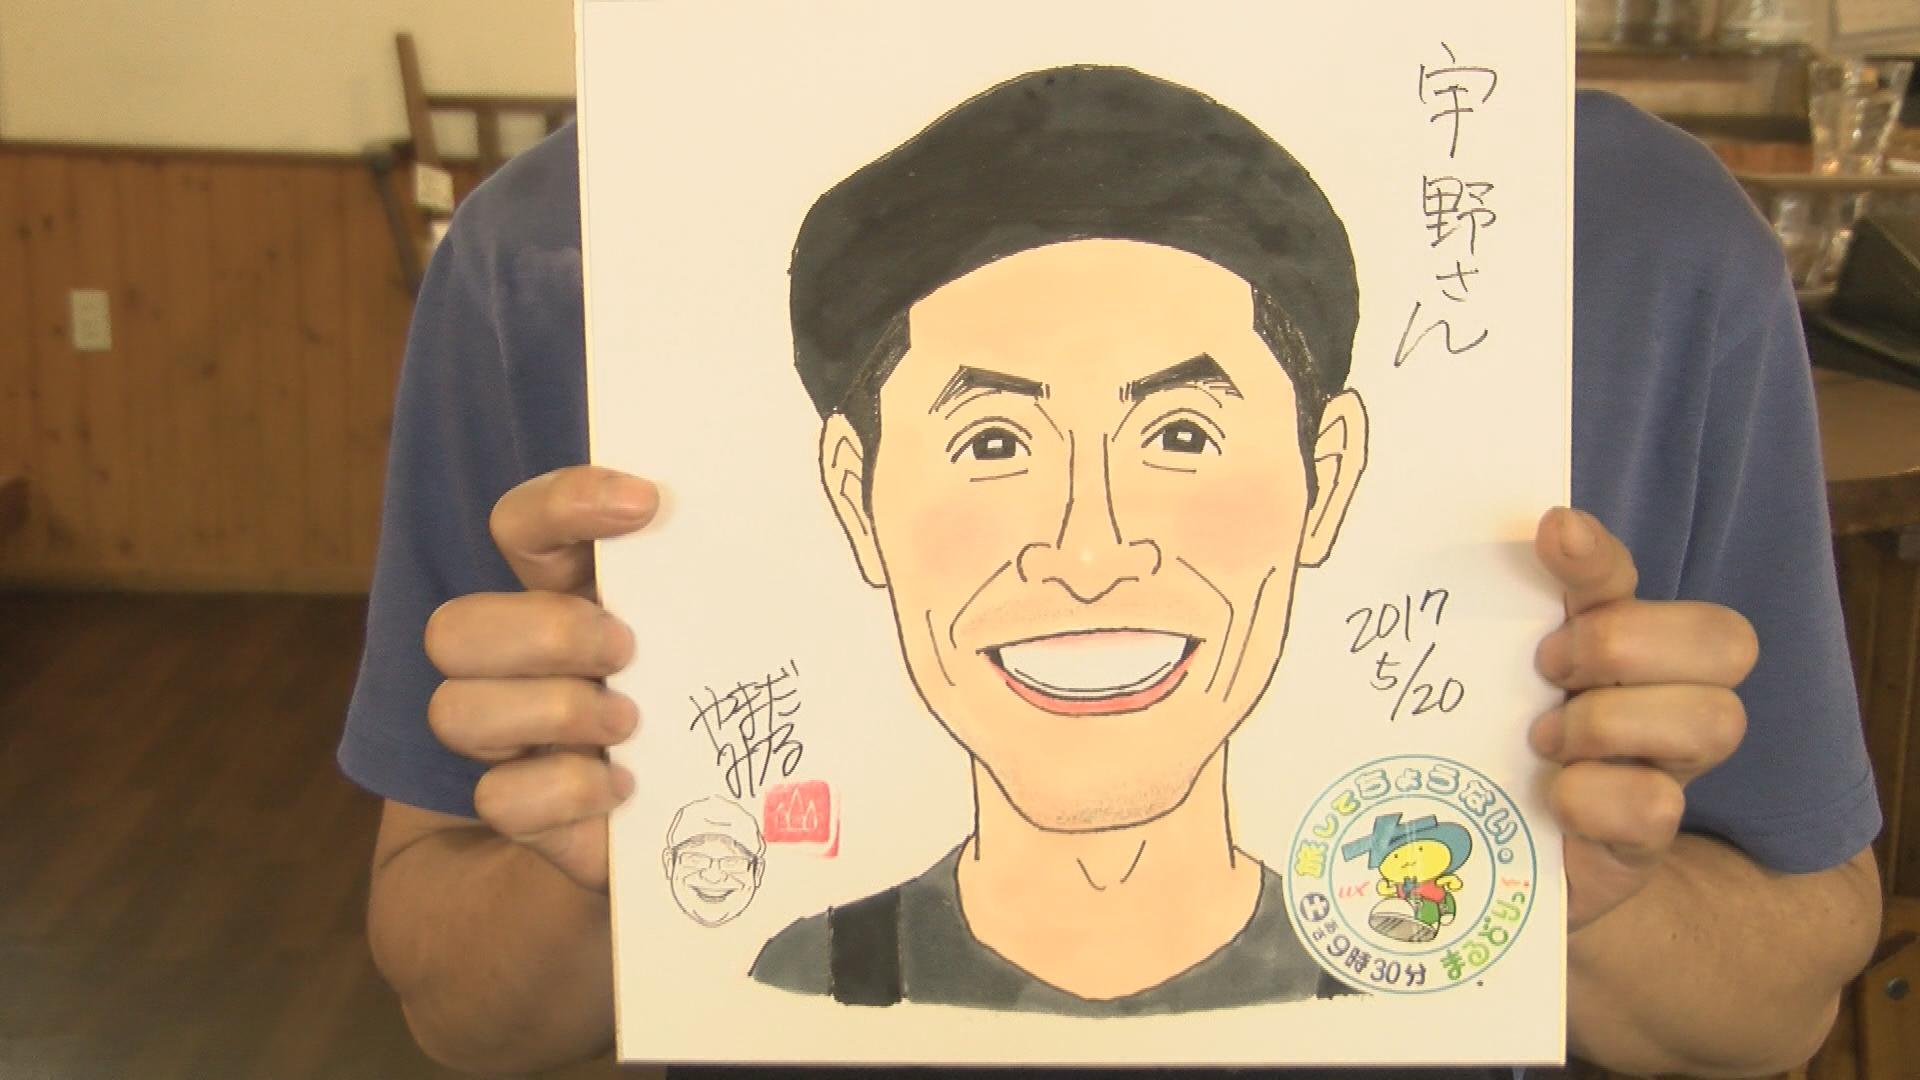 宇野さん
2017
5/20
やまだ
みつる
旅してちょうない。
まるどりっ!
UX
H あさ9時30分